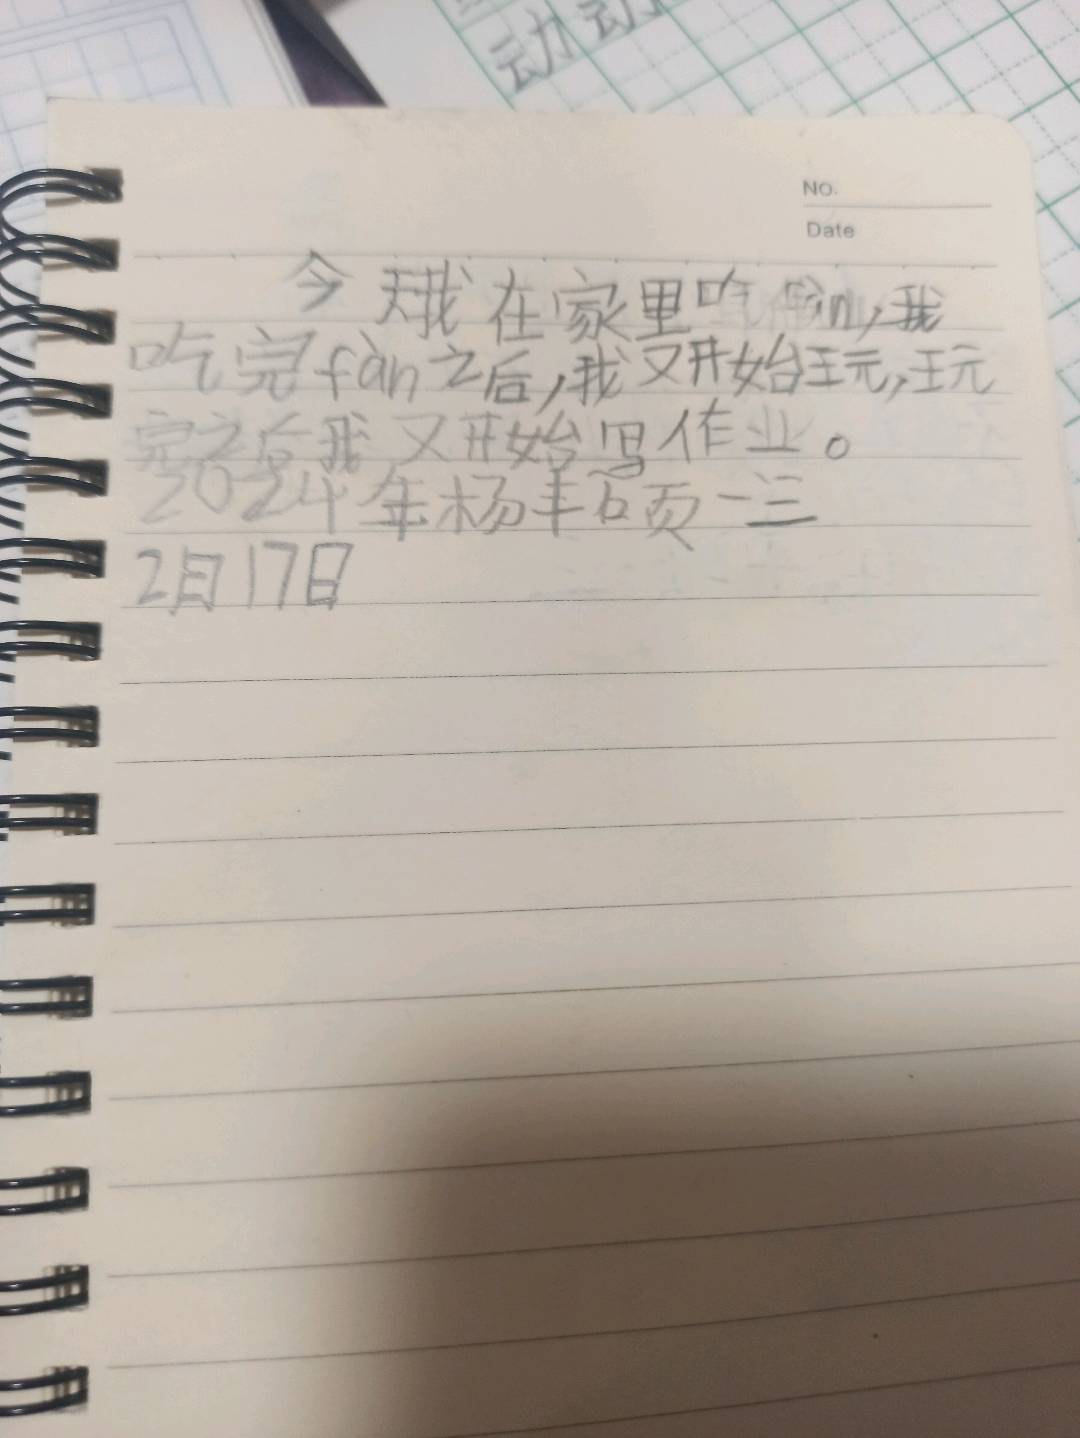 动动
NO.
Date
今天我在家里吃fàn,我
吃完fàn之后,我又开始玩,玩
完之后我又开始写作业。
2024年杨丰硕一三
2月17日